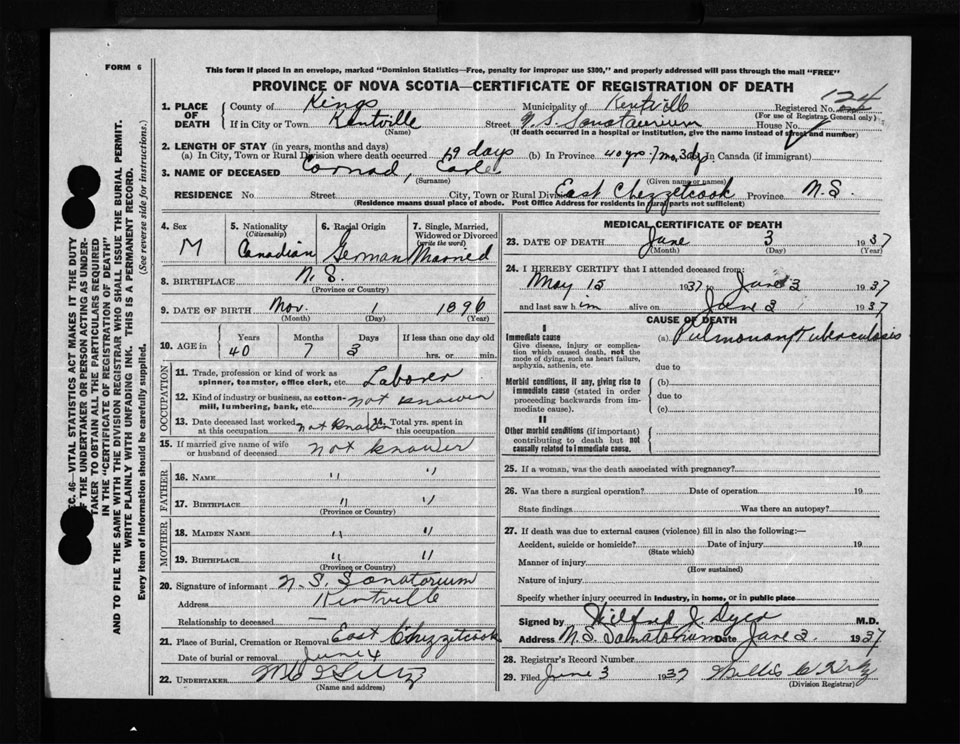 FORM 6
This form if placed in an envelope, marked "Dominion Statistics—Free, penalty for improper use $300," and properly addressed will pass through the mail "FREE"
PROVINCE OF NOVA SCOTIA—CERTIFICATE OF REGISTRATION OF DEATH
124
1. PLACE OF DEATH County of Kings Municipality of Kentville Registered No.
(For use of Registrar General only)
If in City or Town Kentville Street N.S. Sanatorium House No.
(Name) (If death occurred in a hospital or institution, give the name instead of street and number)
2. LENGTH OF STAY (in years, months and days)
(a) In City, Town or Rural Division where death occurred 19 days (b) In Province 40 yrs 7 mo, 3 dy In Canada (if immigrant)
3. NAME OF DECEASED Conrad, Earle
(Surname) (Given name or names)
RESIDENCE No. Street City, Town or Rural Division East Chezzetcook Province N.S.
(Residence means usual place of abode. Post Office Address for residents in rural parts not sufficient)
4. Sex M
5. Nationality (Citizenship) Canadian
6. Racial Origin German
7. Single, Married, Widowed or Divorced (write the word) Married
8. BIRTHPLACE N.S.
(Province or Country)
9. DATE OF BIRTH Nov. 1 1896
(Month) (Day) (Year)
10. AGE in Years Months Days If less than one day old
40 7 3 hrs. or min.
OCCUPATION
11. Trade, profession or kind of work as spinner, teamster, office clerk, etc. Laborer
12. Kind of industry or business, as cotton-mill, lumbering, bank, etc. not known
13. Date deceased last worked at this occupation not known 14. Total yrs. spent in this occupation
15. If married give name of wife or husband of deceased not known
FATHER
16. NAME " "
17. BIRTHPLACE " "
(Province or Country)
MOTHER
18. MAIDEN NAME " "
19. BIRTHPLACE " "
(Province or Country)
20. Signature of informant N.S. Sanatorium
Address Kentville
Relationship to deceased —
21. Place of Burial, Cremation or Removal East Chezzitcook
Date of burial or removal June 4
22. UNDERTAKER
(Name and address)
MEDICAL CERTIFICATE OF DEATH
23. DATE OF DEATH June 3 1937
(Month) (Day) (Year)
24. I HEREBY CERTIFY that I attended deceased from:
May 15 1937 to June 3 1937
and last saw him alive on June 3 1937
CAUSE OF DEATH
I
Immediate cause (a) Pulmonary Tuberculosis
Give disease, injury or complication which caused death, not the mode of dying, such as heart failure, asphyxia, asthenia, etc.
due to
Morbid conditions, if any, giving rise to immediate cause (stated in order proceeding backwards from immediate cause).
(b)
due to
(c)
II
Other morbid conditions (if important) contributing to death but not causally related to immediate cause.
25. If a woman, was the death associated with pregnancy?
26. Was there a surgical operation? Date of operation 19
State findings Was there an autopsy?
27. If death was due to external causes (violence) fill in also the following:—
Accident, suicide or homicide? Date of injury 19
(State which)
Manner of injury
(How sustained)
Nature of injury
Specify whether injury occurred in industry, in home, or in public place
Signed by Hilfred J. Dyer M.D.
Address N.S. Sanatorium Date June 3. 1937
28. Registrar's Record Number
29. Filed June 3 1937 Willis
(Division Registrar)
SEC. 46—VITAL STATISTICS ACT MAKES IT THE DUTY
OF THE UNDERTAKER OR PERSON ACTING AS UNDER-
TAKER TO OBTAIN ALL THE PARTICULARS REQUIRED
IN THE "CERTIFICATE OF REGISTRATION OF DEATH"
AND TO FILE THE SAME WITH THE DIVISION REGISTRAR WHO SHALL ISSUE THE BURIAL PERMIT.
WRITE PLAINLY WITH UNFADING INK. THIS IS A PERMANENT RECORD.
Every item of information should be carefully supplied. (See reverse side for instructions.)